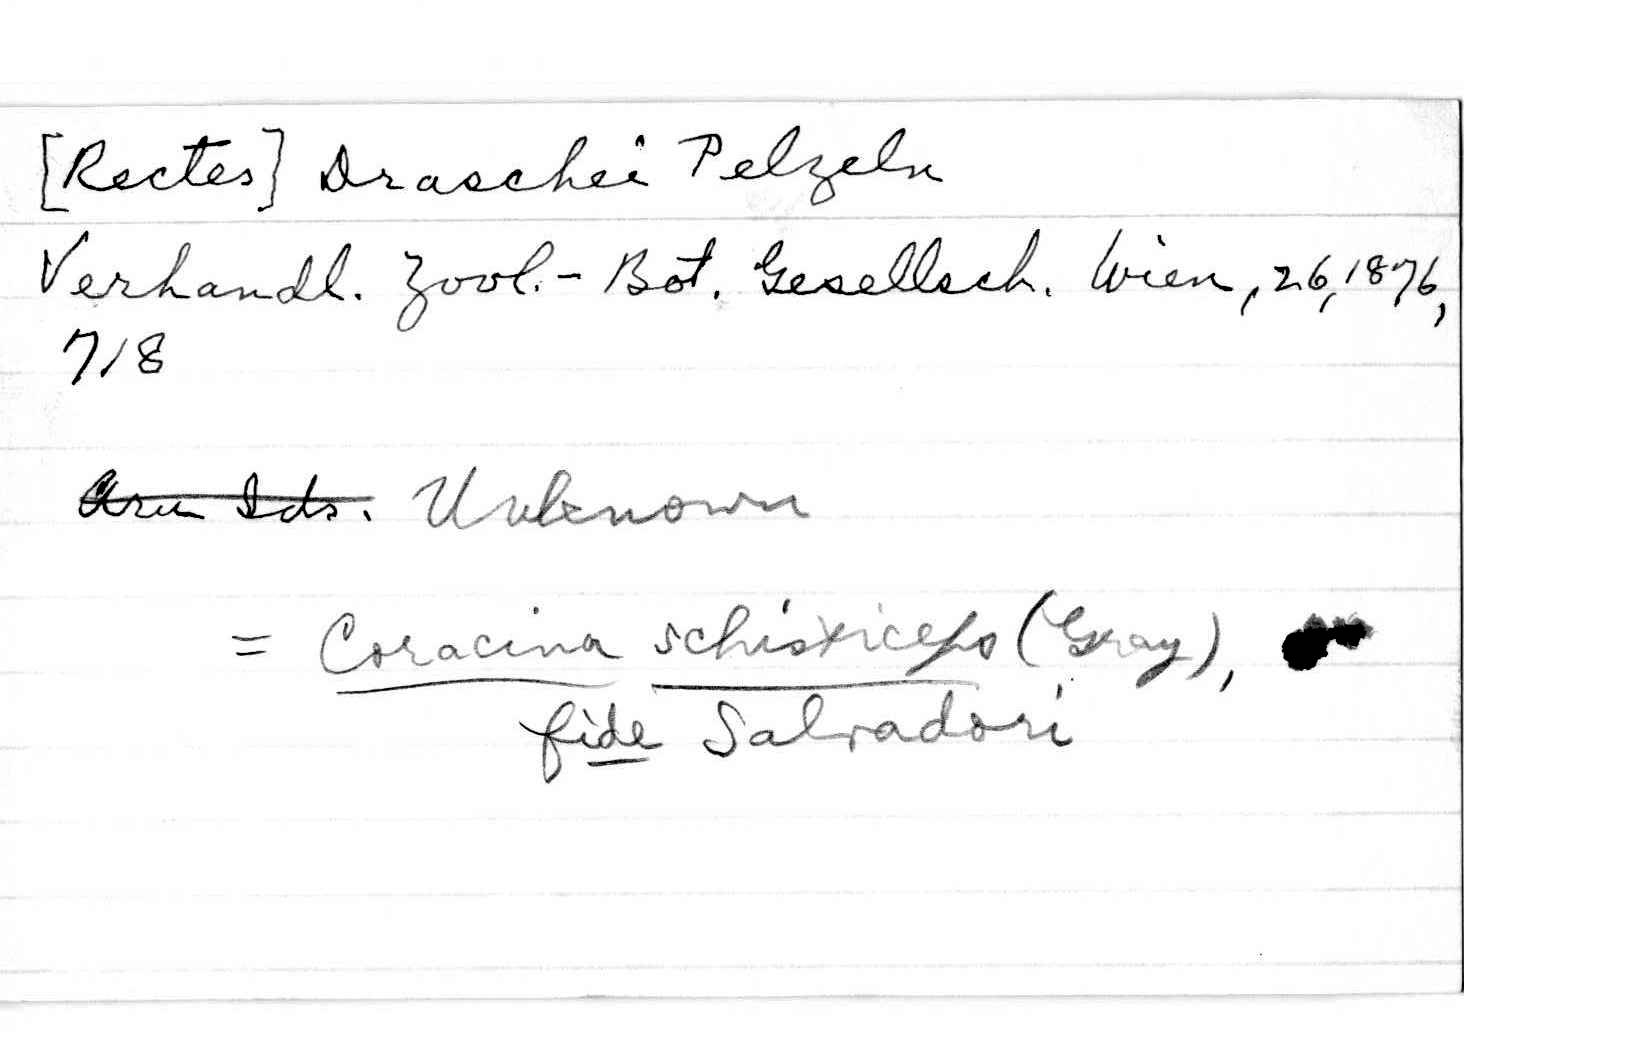 [Rectes] Draschei Pelzeln
Verhandl. Zool.-Bot. Gesellsch. Wien, 26, 1876,
718
Aru Ids. Unknown
= Coracina schisticeps (Gray),
fide Salvadori